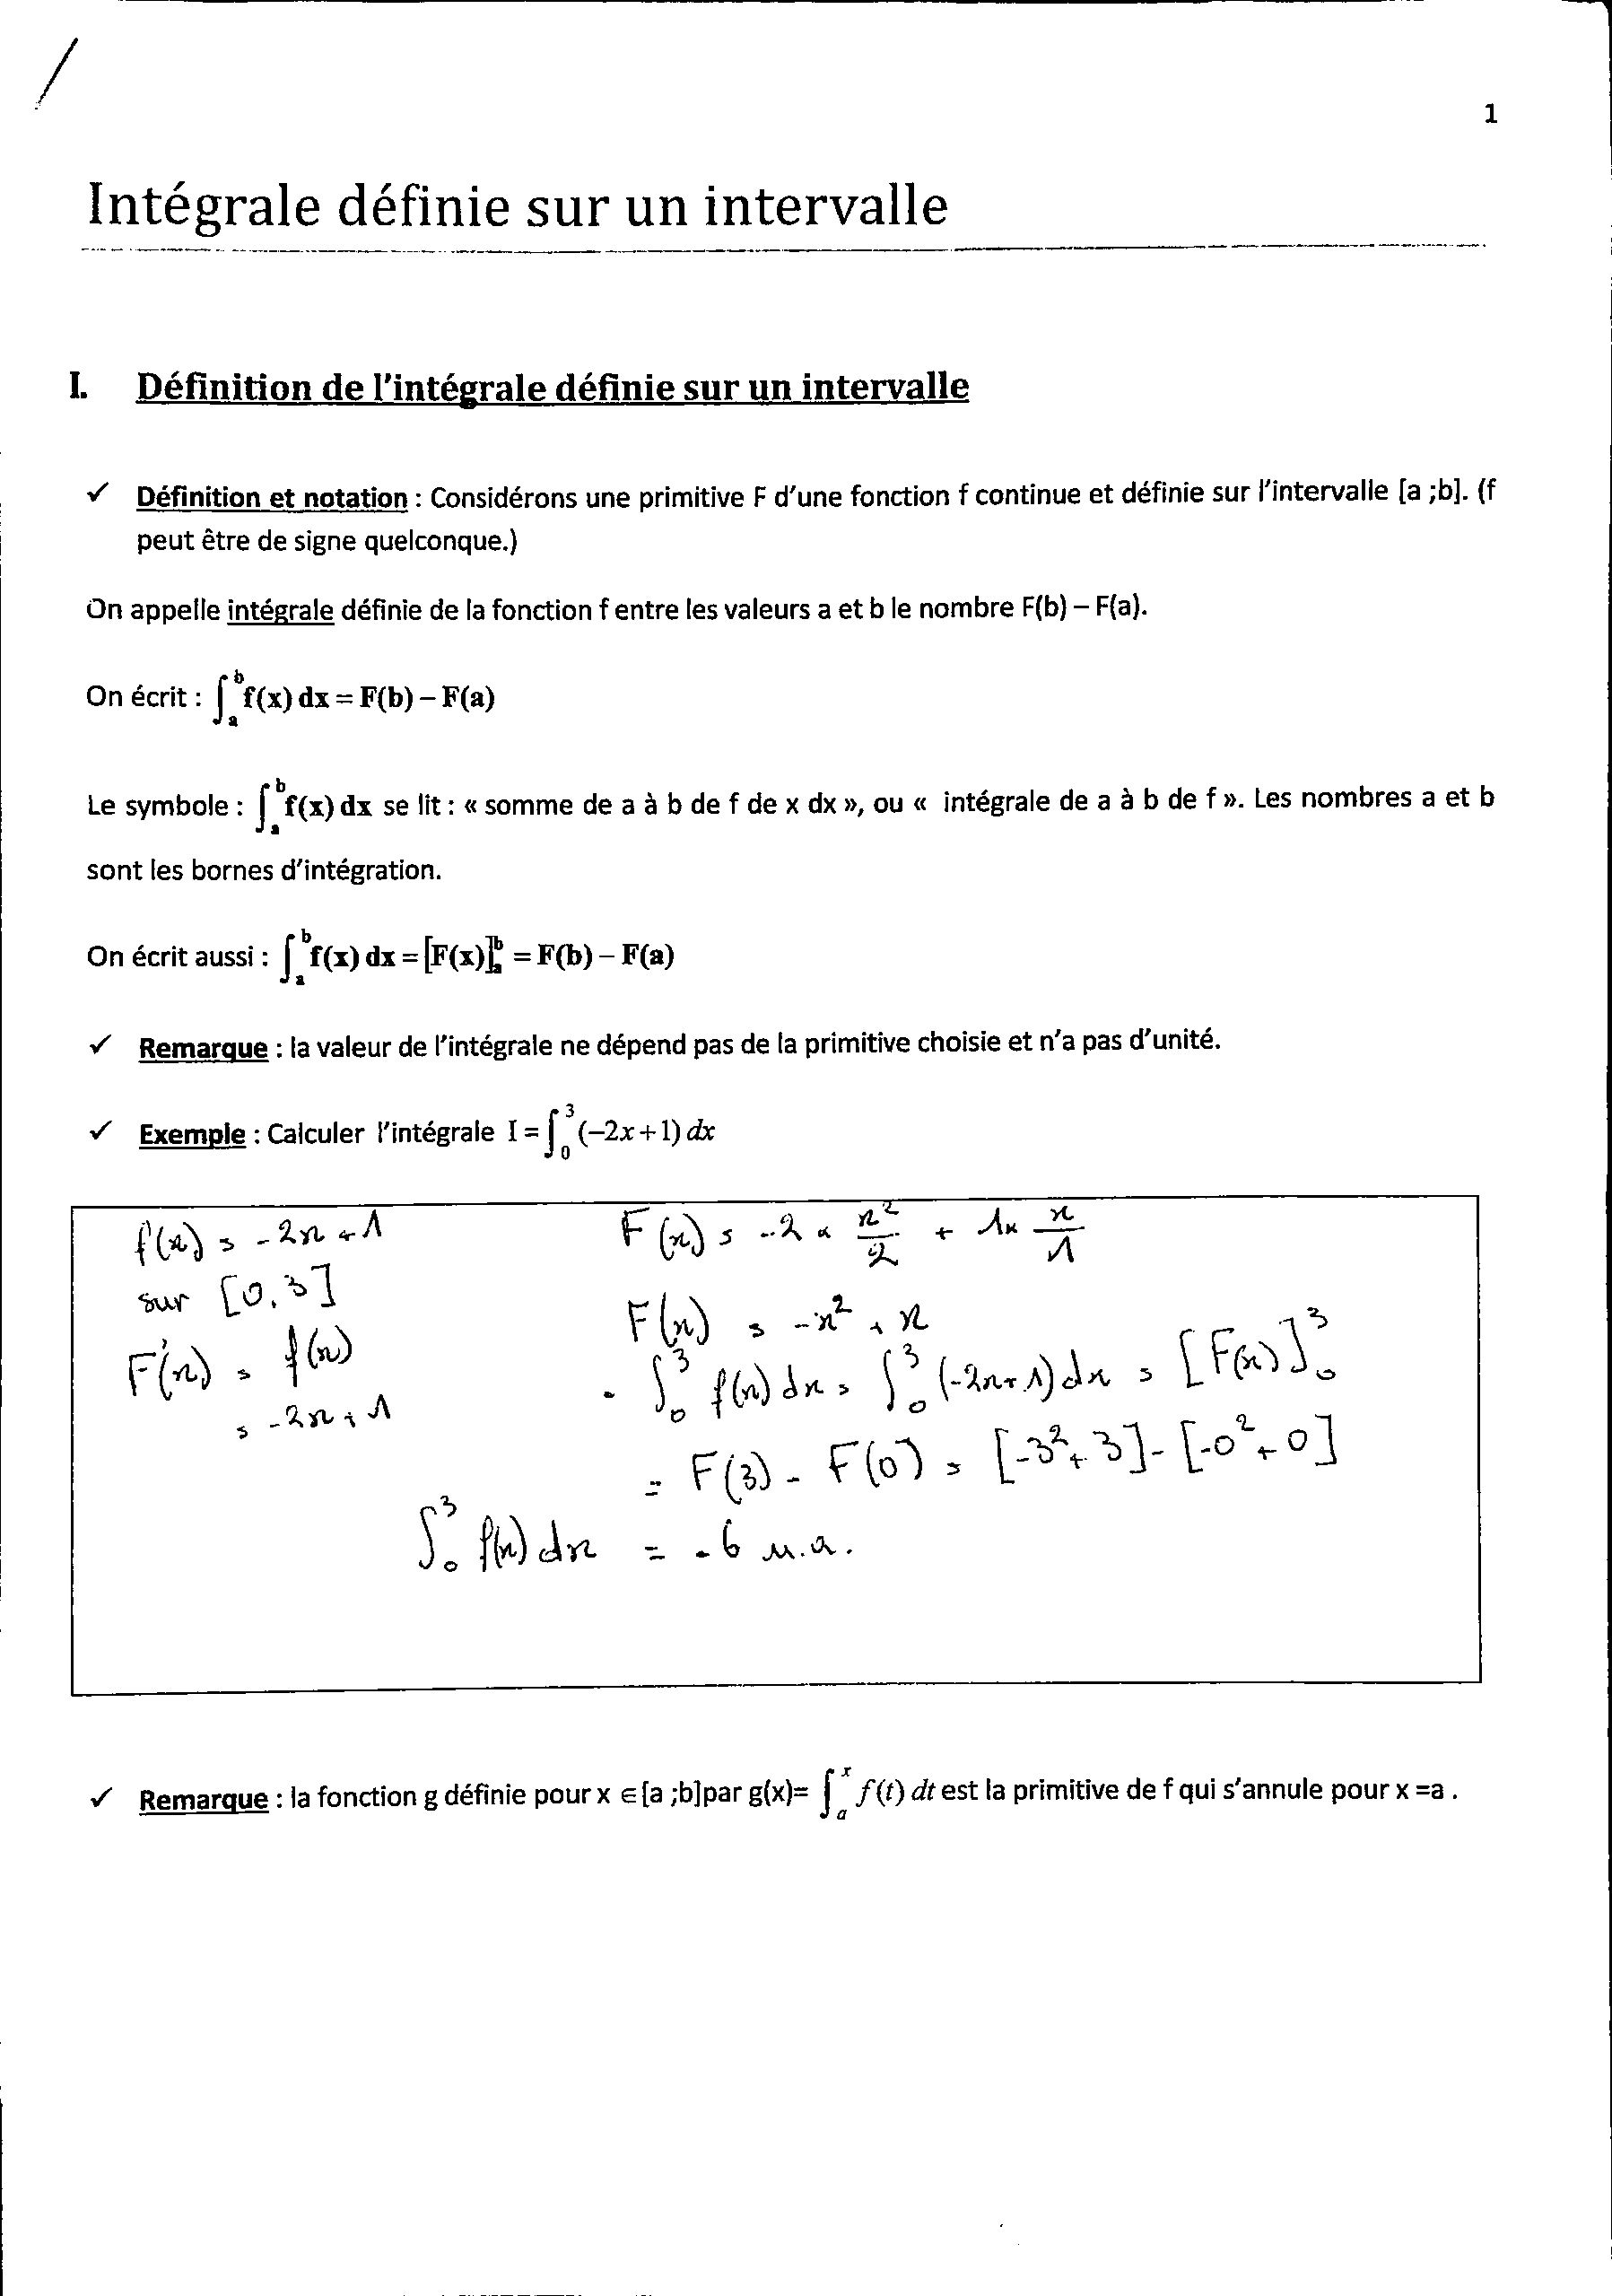 1
Intégrale définie sur un intervalle
I. Définition de l'intégrale définie sur un intervalle
✓ Définition et notation : Considérons une primitive F d'une fonction f continue et définie sur l'intervalle [a ;b]. (f
peut être de signe quelconque.)
On appelle intégrale définie de la fonction f entre les valeurs a et b le nombre F(b) – F(a).
On écrit : ∫_a^b f(x) dx = F(b) – F(a)
Le symbole : ∫_a^b f(x) dx se lit : « somme de a à b de f de x dx », ou « intégrale de a à b de f ». Les nombres a et b
sont les bornes d'intégration.
On écrit aussi : ∫_a^b f(x) dx = [F(x)]_a^b = F(b) – F(a)
✓ Remarque : la valeur de l'intégrale ne dépend pas de la primitive choisie et n'a pas d'unité.
✓ Exemple : Calculer l'intégrale I = ∫_0^3 (–2x+1) dx
f(x) = -2x + 1
sur [0,3]
F'(x) = f(x)
= -2x + 1
F(x) = -2 × x²/2 + 1× x/1
F(x) = -x² + x
• ∫_0^3 f(x) dx = ∫_0^3 (-2x+1) dx = [F(x)]_0^3
= F(3) - F(0) = [-3²+3] - [-0²+0]
∫_0^3 f(x) dx = -6 u.a.
✓ Remarque : la fonction g définie pour x ∈ [a ;b]par g(x)= ∫_a^x f(t) dt est la primitive de f qui s'annule pour x =a .